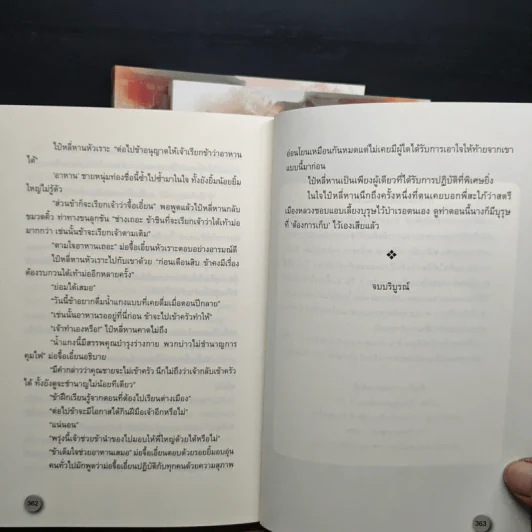 ไป๋หลี่หานหัวเราะ "ต่อไปข้าอนุญาตให้เจ้าเรียกข้าว่าอาหาน
ได้"
'อาหาน' ชายหนุ่มท่องชื่อนี้ซ้ำไปซ้ำมาในใจ ทั้งยังยิ้มน้อยยิ้ม
ใหญ่ไม่รู้ตัว
"ส่วนข้าก็จะเรียกเจ้าว่าจื่อเอี๋ยน" พอพูดแล้วไป๋หลี่หานกลับ
ขมวดคิ้ว ท่าทางขนลุกชัน "ช่างเถอะ ข้าชินที่จะเรียกเจ้าว่าใต้เท้าม่อ
มากกว่า เช่นนั้นข้าจะเรียกเจ้าตามเดิม"
"ตามใจอาหานเถอะ" ม่อจื่อเอี๋ยนหัวเราะตอบอย่างอารมณ์ดี
ไป๋หลี่หานหัวเราะไปกับเขาด้วย "ก่อนเดือนสิบ ข้าคงมีเรื่อง
ต้องรบกวนใต้เท้าม่ออีกหลายครั้ง"
"ย่อมได้เสมอ"
"วันนี้ข้าอยากดื่มน้ำแกงแบบที่เคยดื่มเมื่อตอนปีกลาย"
"เช่นนั้นอาหานรออยู่ที่นี่ก่อน ข้าจะไปเข้าครัวทำให้"
"เจ้าทำเองหรือ!" ไป๋หลี่หานคาดไม่ถึง
"น้ำแกงนี้มีสรรพคุณบำรุงร่างกาย พวกบ่าวไม่ชำนาญการ
คุมไฟ" ม่อจื่อเอี๋ยนอธิบาย
"มีคำกล่าวว่าคุณชายจะไม่เข้าครัว นึกไม่ถึงว่าเจ้ากลับเข้าครัว
ได้ ทั้งยังดูจะชำนาญไม่น้อยทีเดียว"
"ข้าฝึกเรียนรู้จากตอนที่ต้องไปเรียนต่างเมือง"
"ต่อไปข้าจะมีโอกาสได้กินฝีมือเจ้าอีกหรือไม่"
"แน่นอน"
"พรุ่งนี้เจ้าช่วยข้านำของไปมอบให้พี่ใหญ่ด้วยได้หรือไม่"
"ข้าเต็มใจช่วยอาหานเสมอ" ม่อจื่อเอี๋ยนตอบด้วยรอยยิ้มอบอุ่น
คนทั่วไปมักพูดว่าม่อจื่อเอี๋ยนปฏิบัติกับทุกคนด้วยความสุภาพ
362
อ่อนโยนเหมือนกันหมดแต่ไม่เคยมีผู้ใดได้รับการเอาใจให้ท้ายจากเขา
แบบนี้มาก่อน
ไป๋หลี่หานเป็นเพียงผู้เดียวที่ได้รับการปฏิบัติที่พิเศษยิ่ง
ในใจไป๋หลี่หานนึกถึงครั้งหนึ่งที่ตนเคยบอกพี่สะใภ้ว่าสตรี
เมืองหลวงชอบแอบเลี้ยงบุรุษไว้บำเรอตนเอง ดูท่าตอนนี้นางก็มีบุรุษ
ที่ 'ต้องการเก็บ' ไว้เองเสียแล้ว
จบบริบูรณ์
363